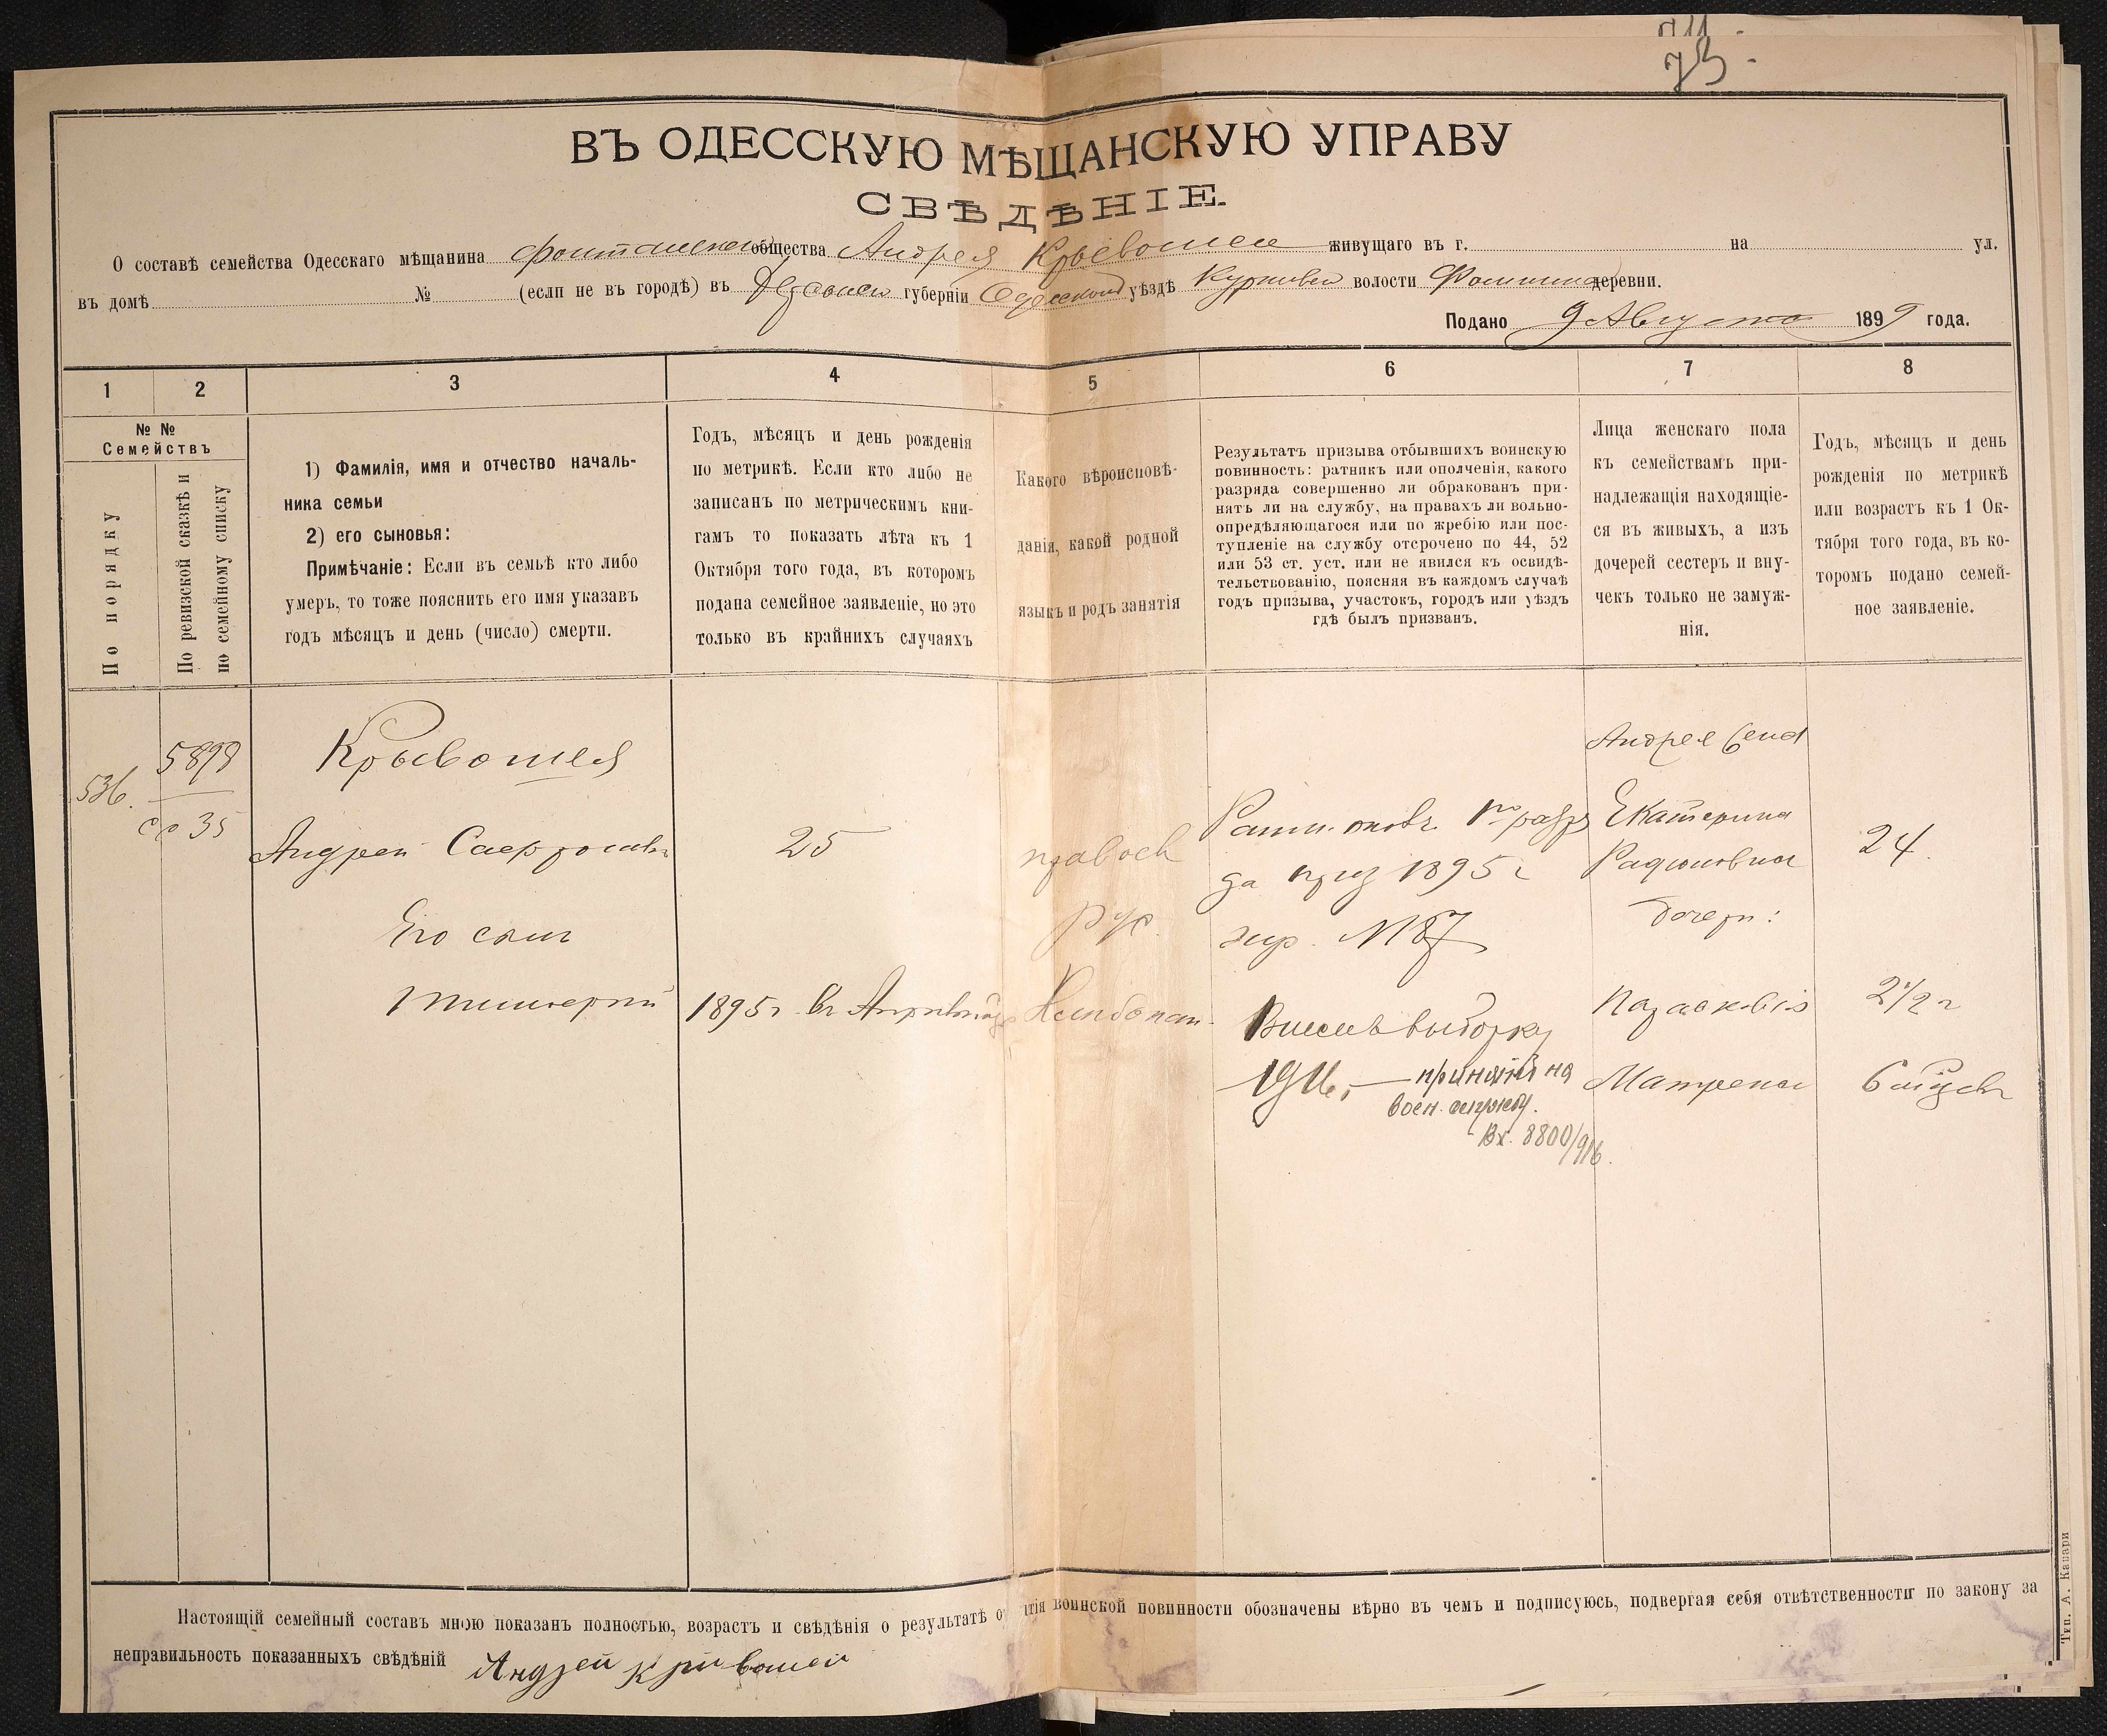 73.
ВЪ ОДЕССКУЮ МѢЩАНСКУЮ УПРАВУ
СВѢДѢНІЕ.
О составѣ семейства Одесскаго мѣщанина общества Андрея Крывошеи живущаго въ г. на ул.
въ домѣ № (если не въ городѣ) въ Херсонск губерніи Одесском уѣздѣ волости деревни.
Подано 9 Августа 1899 года.
1 2 3 4 5 6 7 8
№ №
Семействъ
По порядку
По ревизской сказкѣ и
по семейному списку
1) Фамилія, имя и отчество началь-
ника семьи
2) его сыновья:
Примѣчаніе: Если въ семьѣ кто либо
умеръ, то тоже пояснить его имя указавъ
годъ мѣсяцъ и день (число) смерти.
Годъ, мѣсяцъ и день рожденія
по метрикѣ. Если кто либо не
записанъ по метрическимъ кни-
гамъ то показать лѣта къ 1
Октября того года, въ которомъ
подана семейное заявленіе, но это
только въ крайнихъ случаяхъ
Какого вѣроисповѣ-
данія, какой родной
языкъ и родъ занятія
Результатъ призыва отбывшихъ воинскую
повинность: ратникъ или ополченія, какого
разряда совершенно ли обракованъ при-
нятъ ли на службу, на правахъ ли вольно-
опредѣляющагося или по жребію или пос-
тупленіе на службу отсрочено по 44, 52
или 53 ст. уст. или не явился къ освидѣ-
тельствованію, поясняя въ каждомъ случаѣ
годъ призыва, участокъ, городъ или уѣздъ
гдѣ былъ призванъ.
Лица женскаго пола
къ семействамъ при-
надлежащія находящіе-
ся въ живыхъ, а изъ
дочерей сестеръ и вну-
чекъ только не замуж-
нія.
Годъ, мѣсяцъ и день
рожденія по метрикѣ
или возрастъ къ 1 Ок-
тября того года, въ ко-
торомъ подано семей-
ное заявленіе.
536.
5898
35
Крывошея
Андрей
25
Его сынъ
1895 г.
правосл
рус.
1го разр
за приз 1895 г
жер. №87
Внесенъ въ выборку
1916, — принятъ на
воен. службу.
Вх. 8800/916.
Андрея жена
Екатерина
Радионовна
24.
дочери:
Параскевія
2 1/2 г
Матрена
6 мѣсяц
Настоящій семейный составъ мною показанъ полностью, возрастъ и свѣдѣнія о результатѣ о тія воинской повинности обозначены вѣрно въ чемъ и подписуюсь, подвергая себя отвѣтственности по закону за
неправильность показанныхъ свѣдѣній Андрей Кривошей
Тип. А. Капари